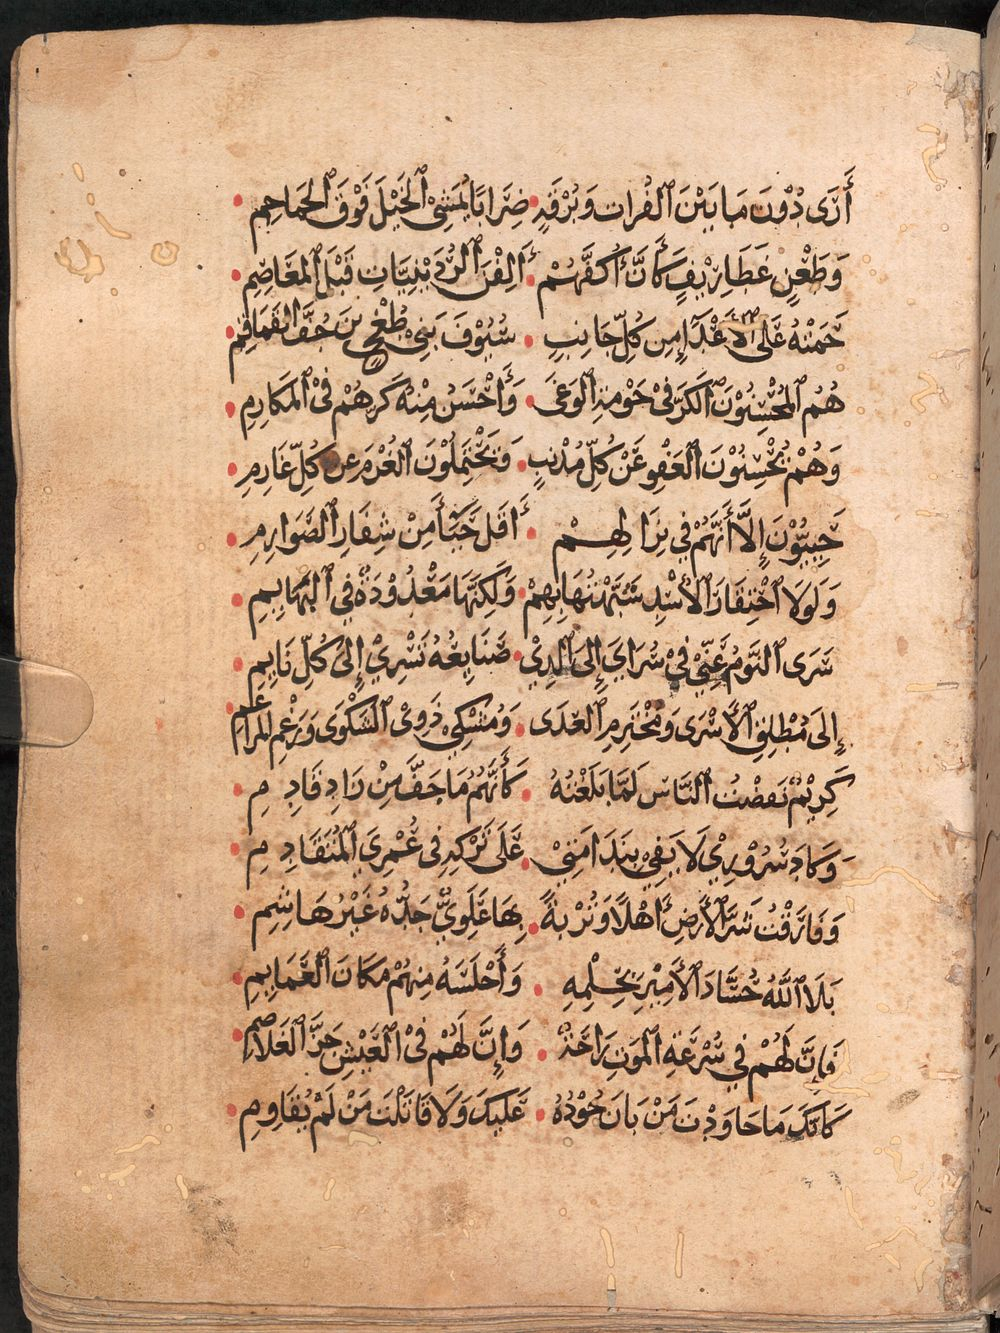 أَرَى دُوْنَ مَا بَيْنَ ٱلْفُرَاتِ وَبُرْقَةٍ ضِرَابًا يُمَشِّىْ ٱلْخَيْلَ فَوْقَ ٱلْجَمَاجِمِ
وَطَعْنِ غَطَارِيْفٍ كَأَنَّ أَكُفَّهُمْ أَلِفْنَ ٱلرُّدَيْنِيَّاتِ قَبْلَ ٱلْمَعَاصِمِ
حَمَتْهُ عَلَى ٱلأَعْدَاءِ مِن كُلِّ جَانِبٍ سُيُوْفُ بَنِيْ طُغْجِ بْنِ جُفَّ ٱلقَمَاقِمِ
هُمُ ٱلْمُحْسِنُوْنَ ٱلْكَرَّ فِيْ حَوْمَةِ ٱلْوَغَى وَأَحْسَنُ مِنْهُ كَرُّهُمْ فِيْ ٱلْمَكَارِمِ
وَهُمْ يُحْسِنُوْنَ ٱلْعَفْوَ عَنْ كُلِّ مُذْنِبٍ وَيَحْتَمِلُوْنَ ٱلْغُرْمَ عِن كُلِّ غَارِمِ
حَيِيُّوْنَ إِلَّا أَنَّهُمْ فِي نِزَالِهِمْ أَقَلُّ حَيَاءً مِنْ شِفَارِ ٱلصَّوَارِمِ
وَلَولَا ٱحْتِقَارُ ٱلْأُسْدِ شَبَّهْتُهَا بِهِمْ وَلَكِنَّهَا مَعْدُوْدَةٌ فِي ٱلْبَهَايِمِ
سَرَى ٱلنَّومُ عَنِّيْ فِيْ سُرَايَ إِلَى ٱلَّذِيْ صَنَايِعُهُ تَسْرِيْ إِلَىْ كُلِّ نَايِمِ
إِلَى مُطْلِقِ ٱلْأَسْرَى وَمُخْتَرِمِ ٱلْعِدَى وَمُشْكِيْ ذَوِىْ ٱلشَّكْوَى وَرَغْمِ ٱلْمُرَاغِمِ
كَرِيْمٌ نَفَضْتُ ٱلنَّاسَ لَمَّا بَلَغْتُهُ كَأَنَّهُمُ مَا جَفَّ مِنْ زَادِ قَادِمِ
وَكَادَ سُرُوْرِيْ لَا يَفِيْ بِنَدَامَتِيْ عَلَى تَرْكِهِ فِى عُمْرِيَ ٱلْمُتَقَادِمِ
وَفَارَقْتُ شَرَّ ٱلْأَرْضِ أَهْلًا وَتُرْبَةً بِهَا عَلَوِيٌّ جَدُّهُ غَيْرُ هَاشِمِ
بَلَا ٱللَّهُ حُسَّادَ ٱلْأَمِيْرِ بِحِلْمِهِ وَأَجْلَسَهُ مِنْهُمْ مَكَانَ ٱلْعَمَايِمِ
فَإِنَّ لَهُمْ فِي سُرْعَةِ ٱلْمَوتِ رَاحَةً وَإِنَّ لَهُمْ فِيْ ٱلْعَيْشِ حَزَّ ٱلْغَلَاصِمِ
كَأنَّكَ مَا جَاوَدْتَ مَنْ بَانَ جُوْدُهُ عَلَيْكَ وَلَا قَاتَلْتَ مَنْ لَمْ يُقَاوِمِ